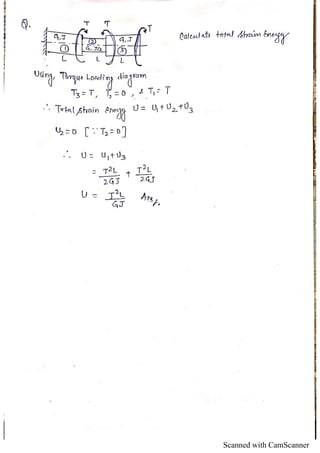 Q.
T T T
G,J (2) G,J
(1) G, J/2 (3)
L L L
Calculate total strain Energy
Using Torque Loading diagram
T₃ = T, T₂ = 0, & T₁ = T
∴ Total strain Energy U = U₁ + U₂ + U₃
U₂ = 0 [∵ T₂ = 0]
∴ U = U₁ + U₃
= T²L/2GJ + T²L/2GJ
U = T²L/GJ Ans.
Scanned with CamScanner